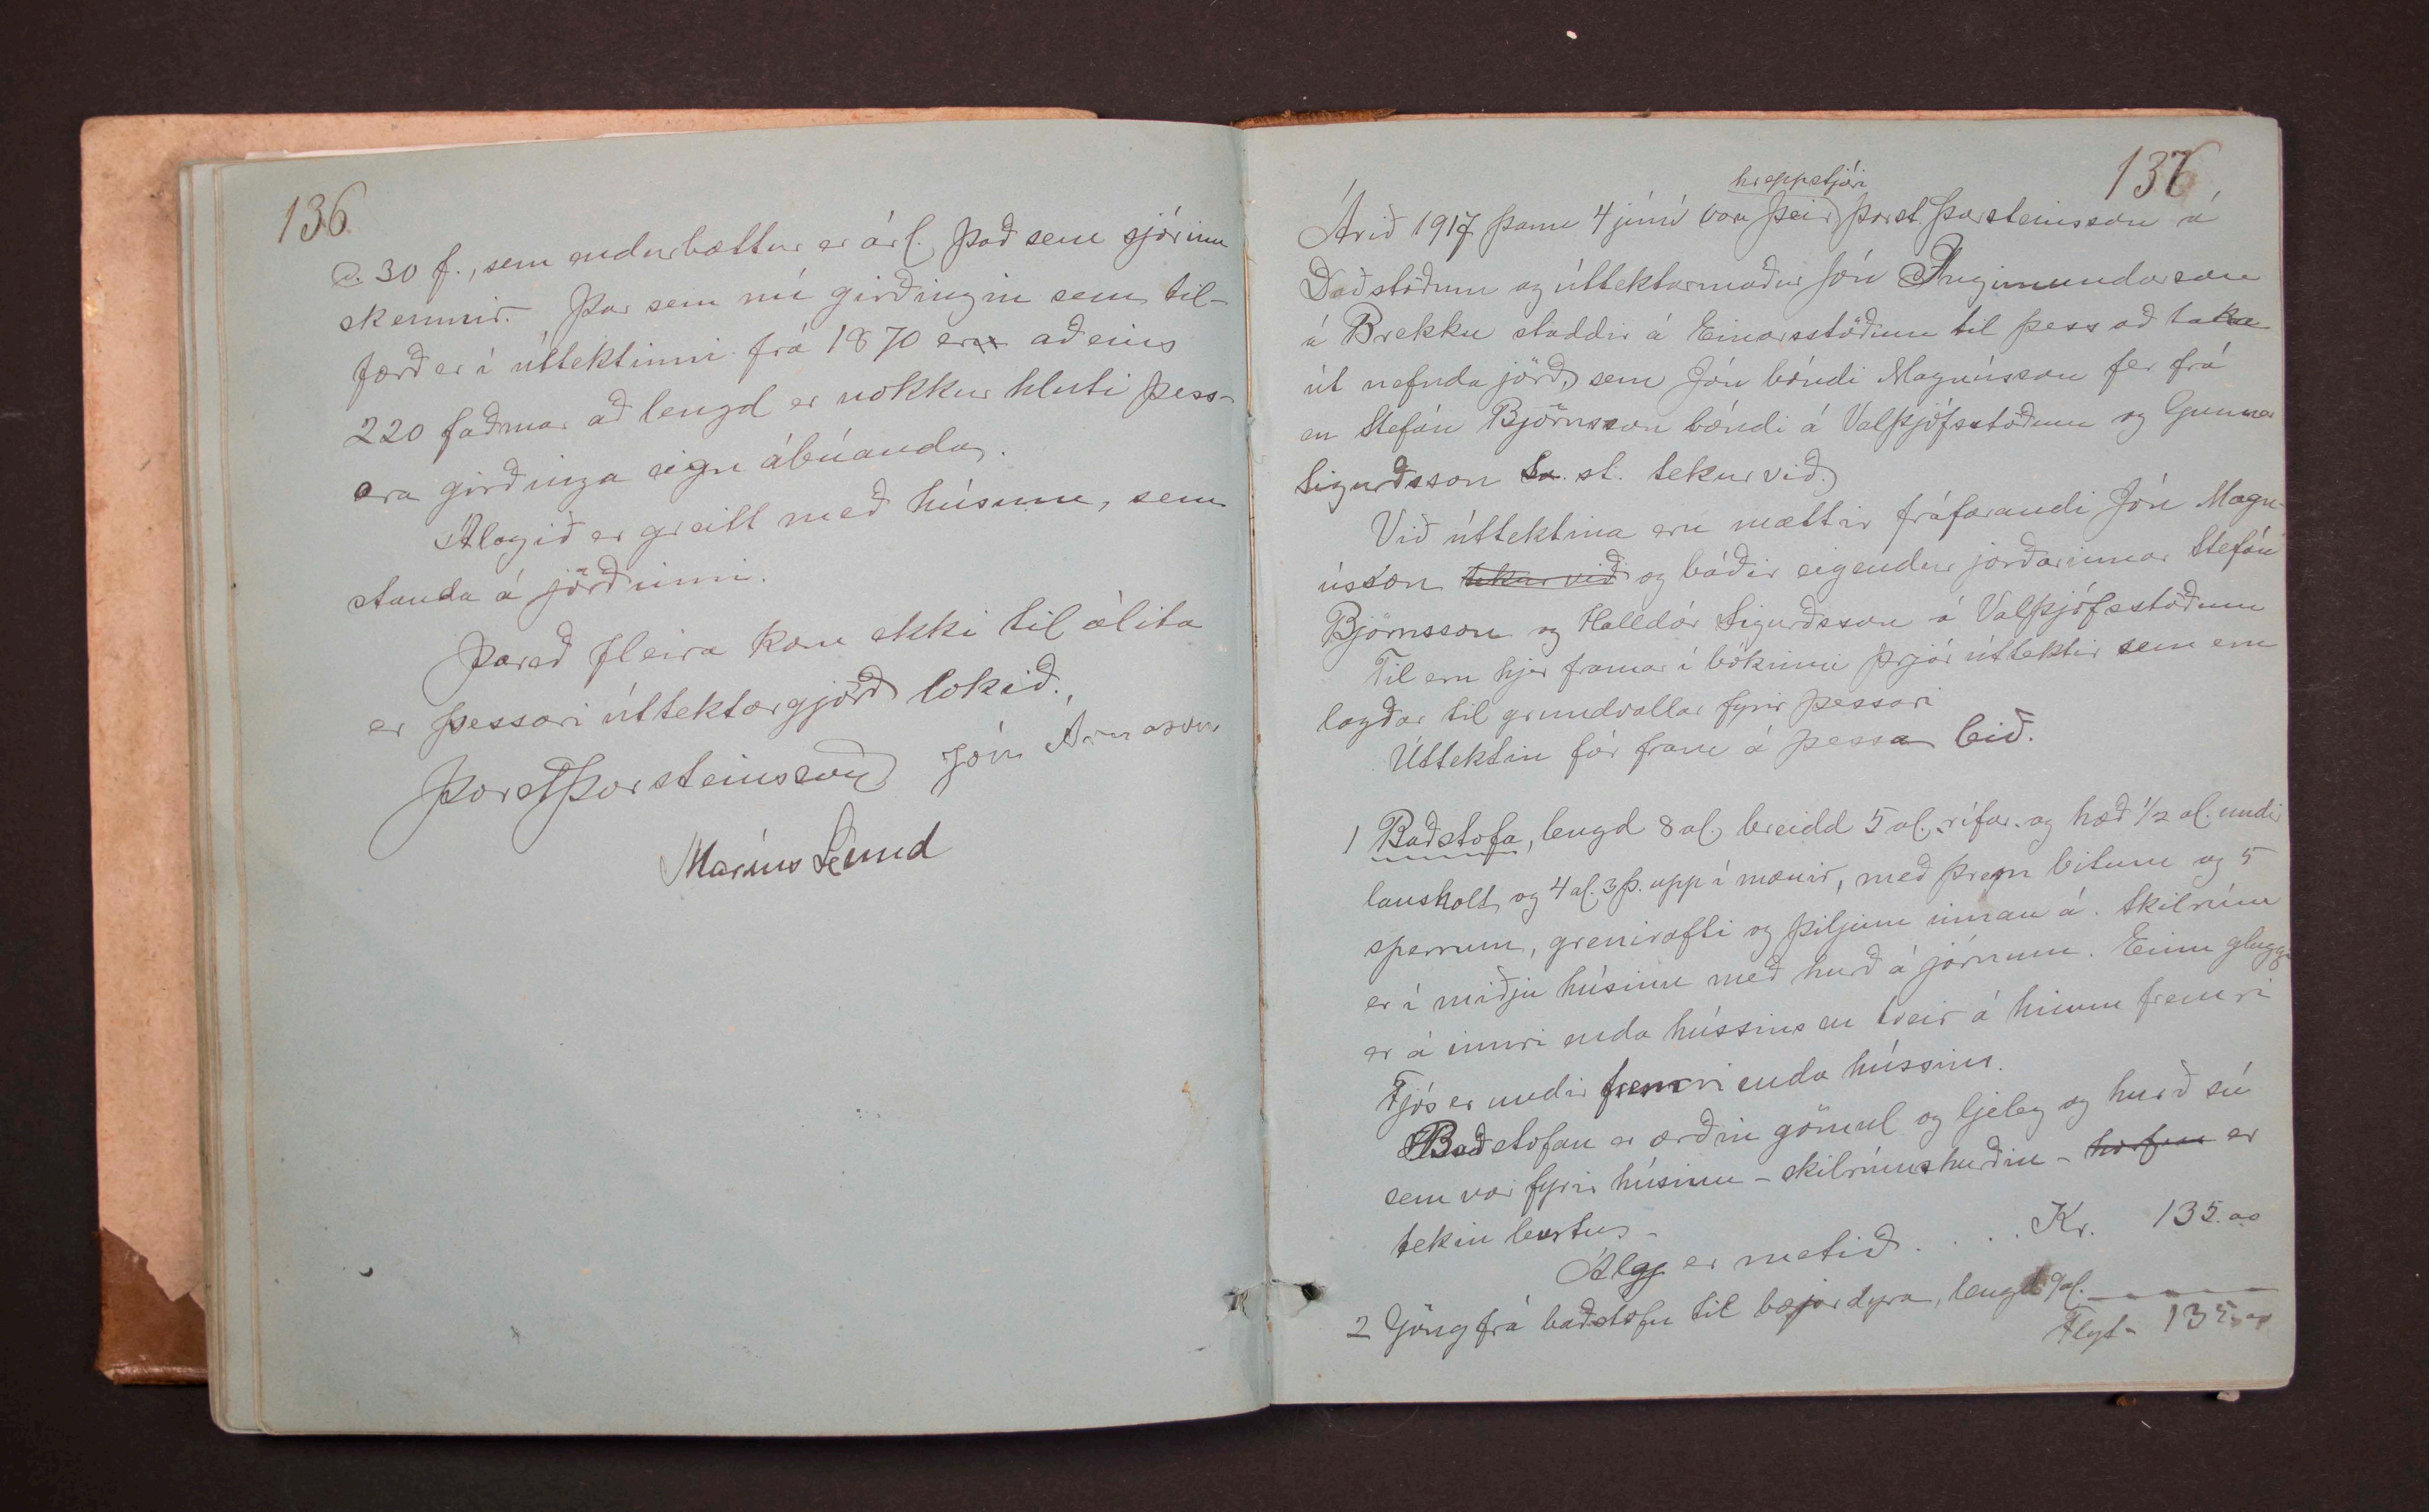 136
c. 30 f., sem endurbættur er árl. það sem sjórinn
skemmir. Þar sem nú girðingin sem til-
færð er í úttektinni frá 1870 er aðeins
220 faðmar að lengd er nokkur hluti þess-
ara girðinga eign ábúanda.
Álagið er greitt með húsum, sem
standa á jörðinni.
Þareð fleira kom ekki til álita
er þessari úttektargjörð lokið.
Þorst Þorsteinsson Jón Árnason
Maríus Lund
137
hreppstjóri
Árið 1917 þann 4 júní voru þeir Þorst. Þorsteinsson á
Daðstöðum og úttektarmaður Jón Ingimundarson
á Brekku staddir á Einarsstöðum til þess að taka
út nefnda jörð, sem Jón bóndi Magnússon fer frá
en Stefán Björnsson bóndi á Valþjófsstöðum og Gunnar
Sigurðsson s. st. tekur við.
Við úttektina eru mættir fráfarandi Jón Magn-
ússon tekur við og báðir eigendur jarðarinnar Stefán
Björnsson og Halldór Sigurðsson á Valþjófsstöðum
Til eru hjer framar í bókinni þrjár úttektir sem eru
lagðar til grundvallar fyrir þessari
Úttektin fór fram á þessa leið.
1 Baðstofa, lengd 8 al. breidd 5 al. rífar. og hæð 1/2 al. undir
lausholt og 4 al. 3 þ. upp í mænir, með þrem bitum og 5
sperrum, grenirafti og þiljum innan á. Skilrúm
er í miðju húsinu með hurð á járnum. Einn gluggi
er á innri enda hússins en tveir á hinum fremri
Fjós er undir fremri enda hússins.
Baðstofan er orðin gömul og ljeleg og hurð sú
sem var fyrir húsinu - skilrúmshurðin - horfin er
tekin burtu -
Álag er metið . . . . Kr. 135.00
2 Göng frá baðstofu til bæjardyra, lengd 9 al.
Flyt - 135.00